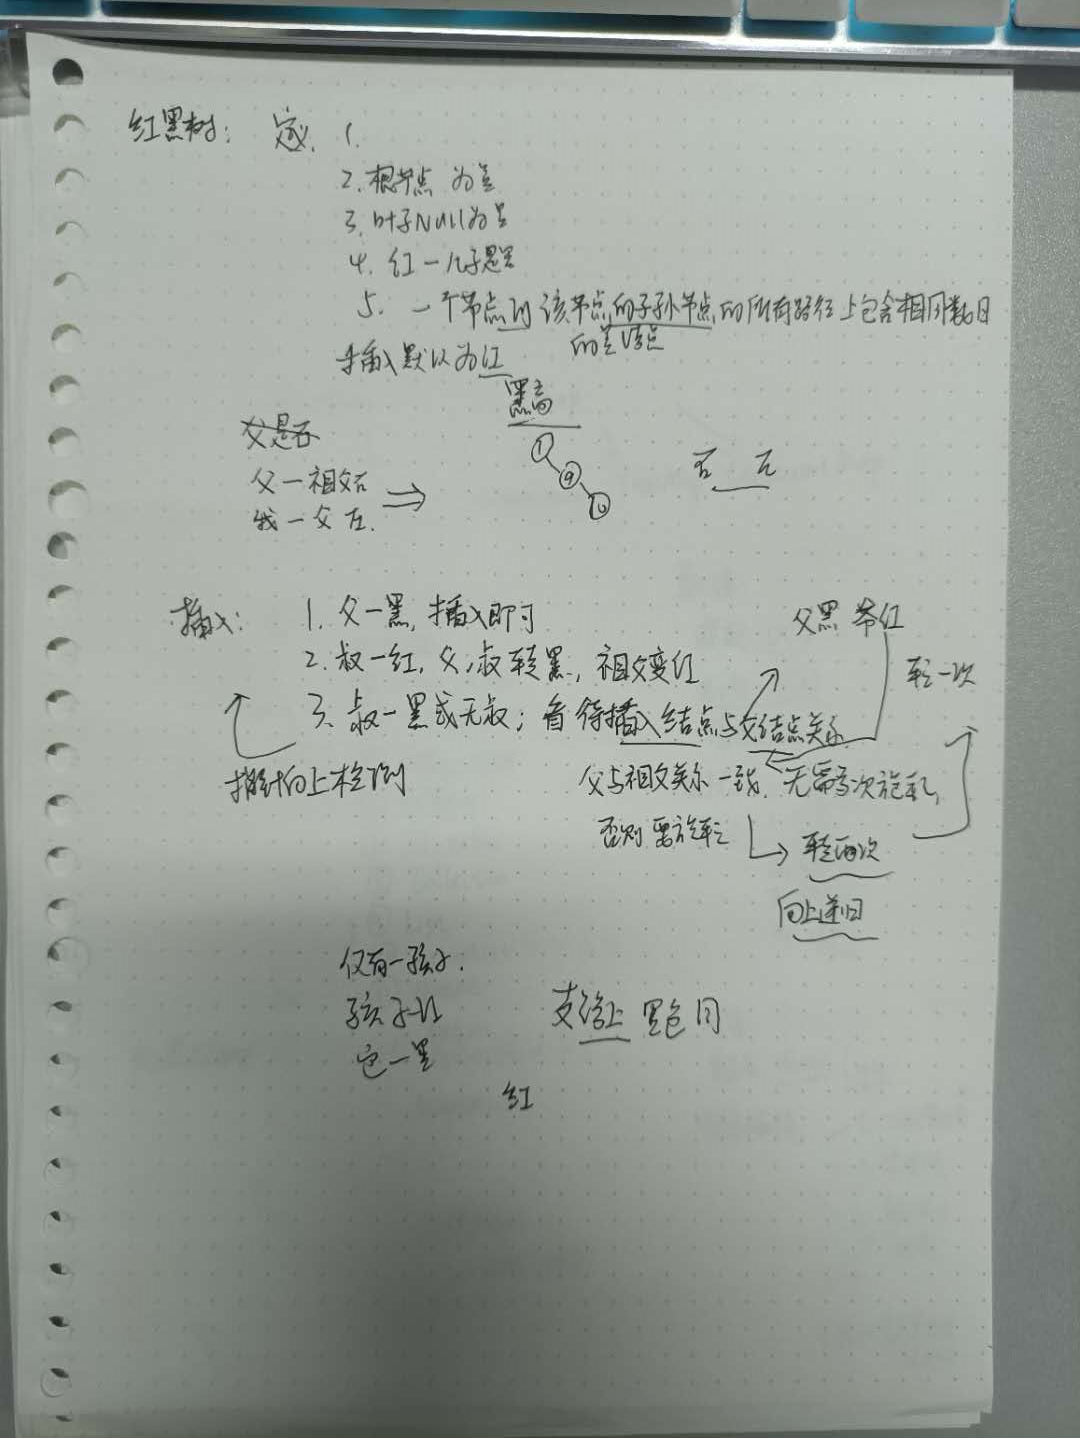 红黑树: 定义. 1.
2. 根节点 为黑
3. 叶子Null为黑
4. 红一儿子黑
5. 一个节点到该节点的子孙节点的所有路径上包含相同数目
的黑结点
插入默认为红
黑高
父是否
父一祖父右
我一父左.
1
9
10
右 左
插入: 1. 父一黑, 插入即可
2. 叔一红, 父,叔转黑, 祖父变红
3. 叔一黑或无叔; 看待插入结点与父结点关系
父黑 爷红
转一次
指针向上检测
父与祖父关系一致, 无需多次旋转,
否则需旋转
转两次
向上递归
仅有一孩子.
孩子红
它一黑
支路上 黑色同
红